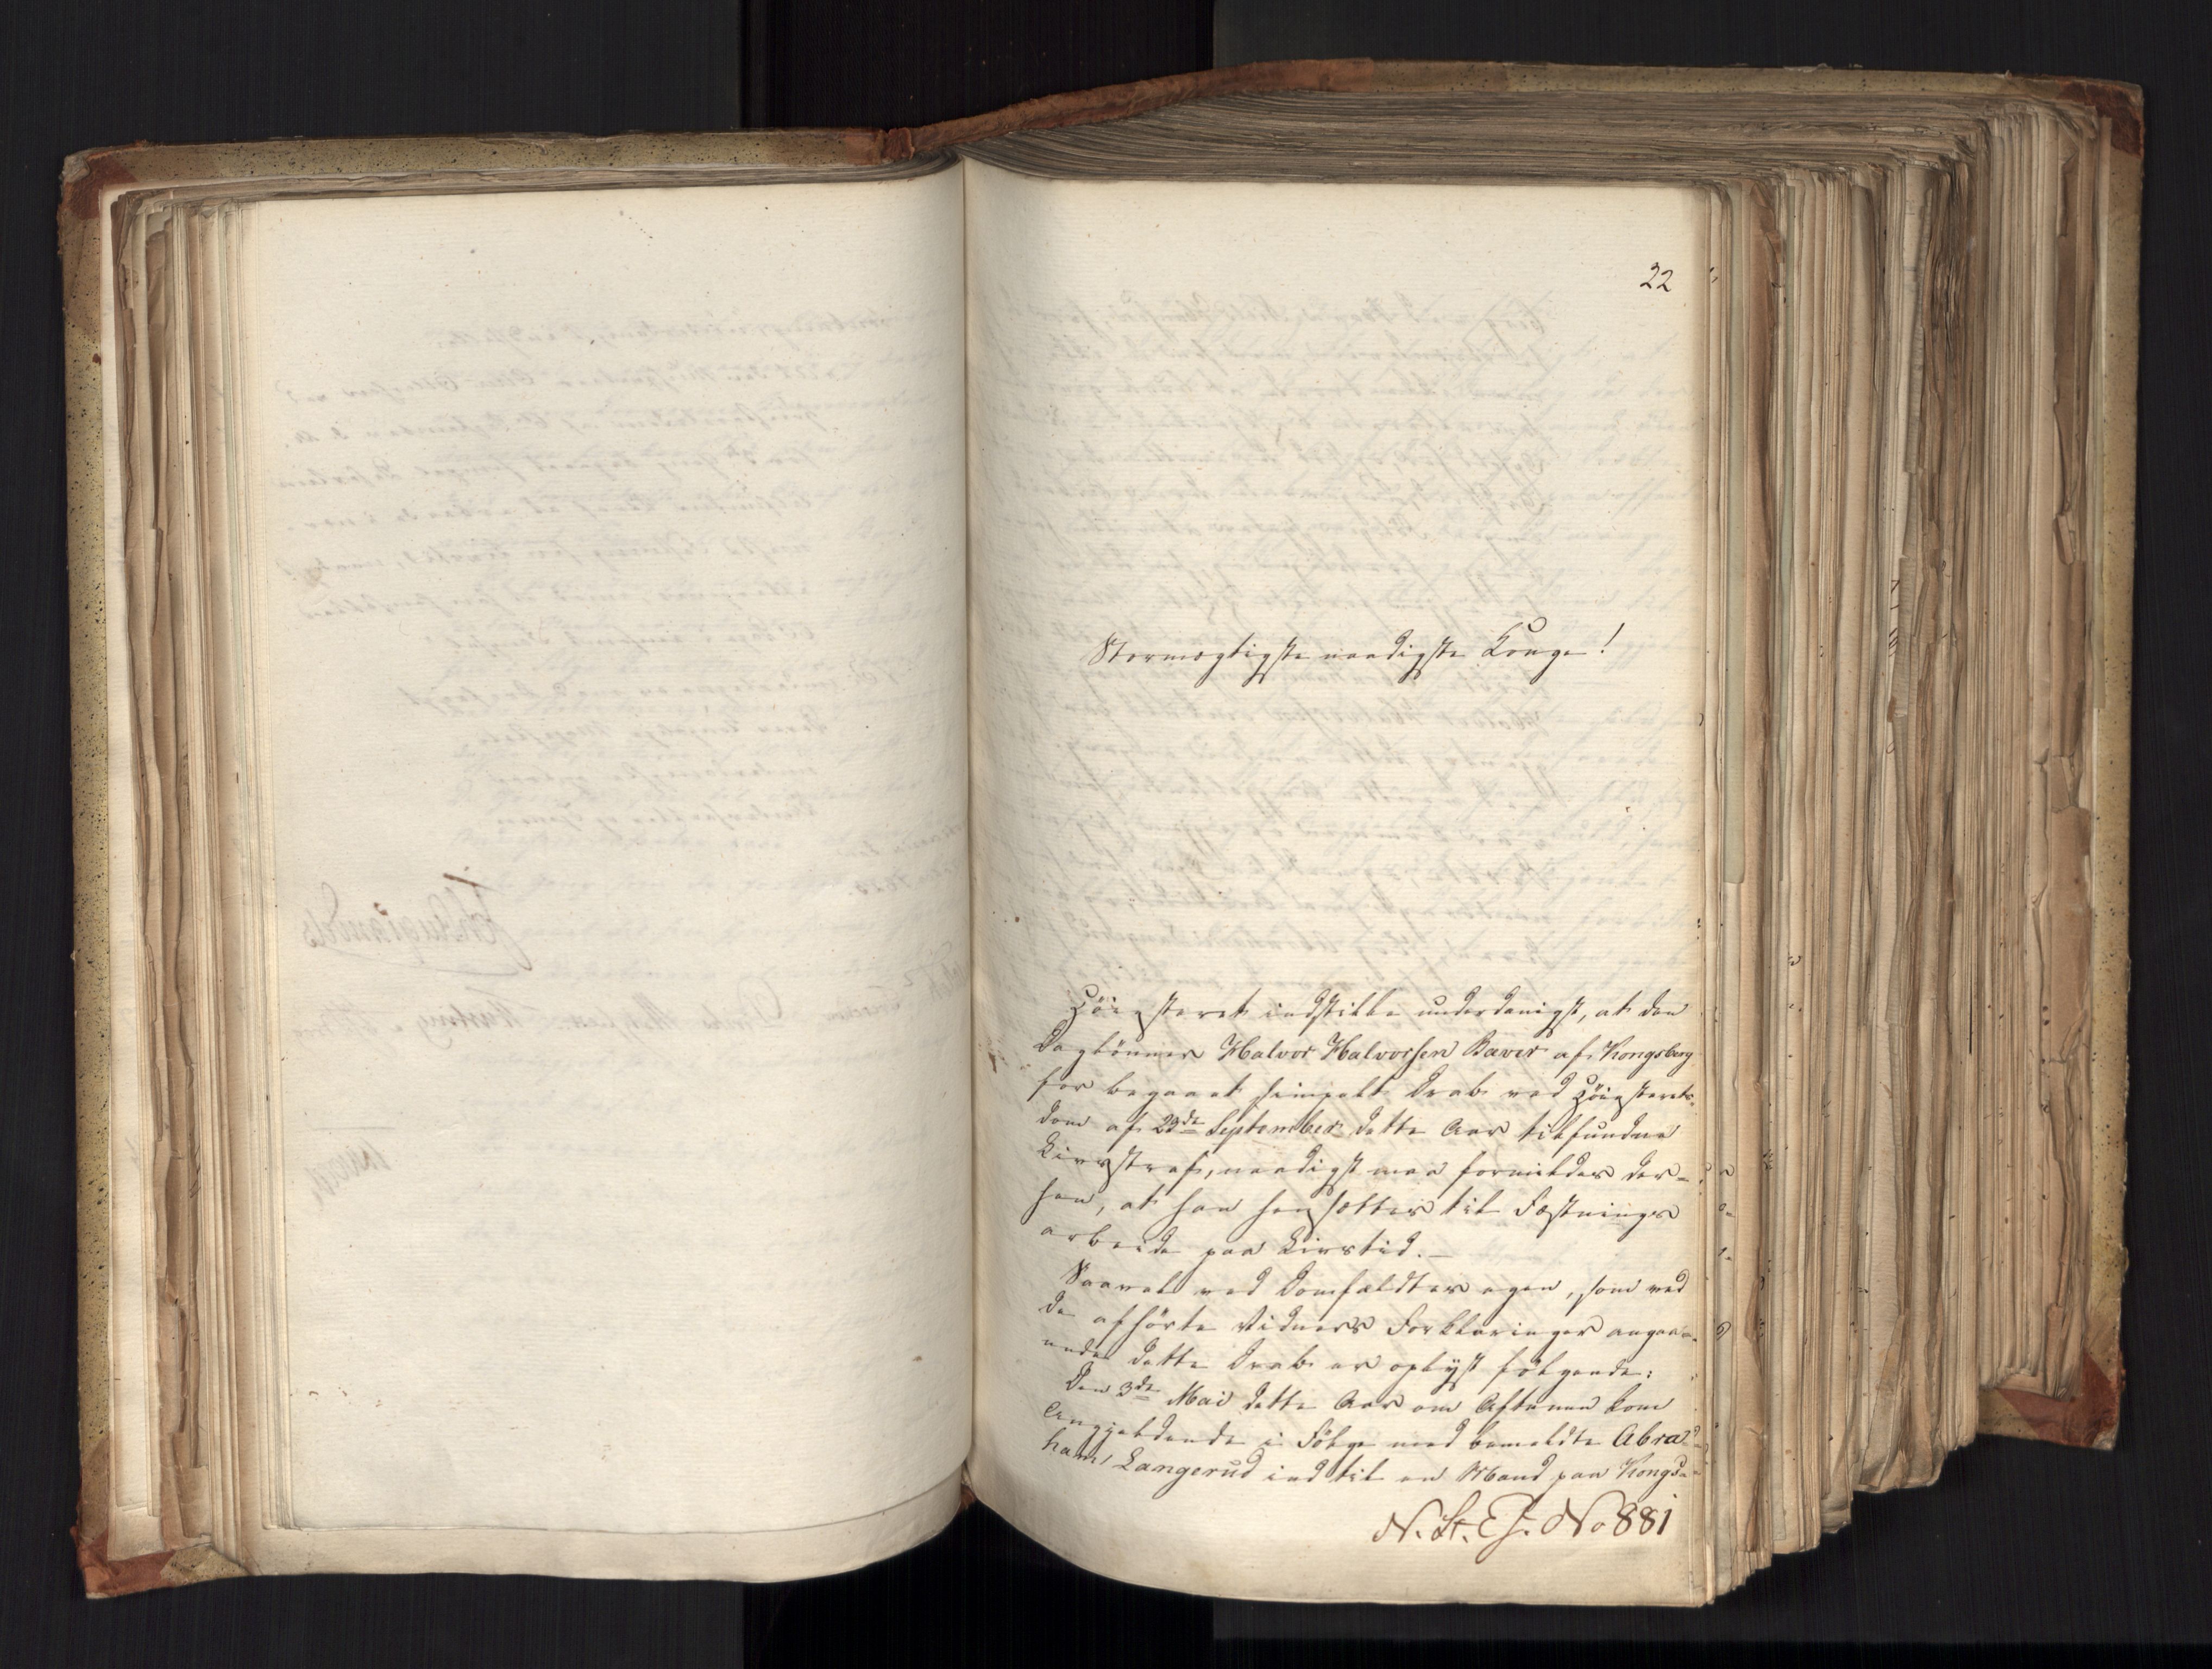 22
Stormægtigste naadigste Konge!
Höiesteret indstille underdanigst, at den
Daglönner Halvor Halvorsen Bæver af Kongsberg
for begaaet simpelt Drab ved Höiesterets-
dom af 23de September dette Aar tilfundne
Livsstraf, naadigst maa formildes der-
hen, at han hensættes til Fæstnings
arbeide paa Livstid. —
Saavel ved Domfældtes egen, som ved
de afhörte Vidners Forklaringer angaa-
ende dette Drab er oplyst fölgende:
Den 3de Mai dette Aar om Aftenen kom
Angjeldende i Fölge med bemeldte Abra-
ham Langerud ind til en Mand paa Kongs-
N. St. Ex. No 881